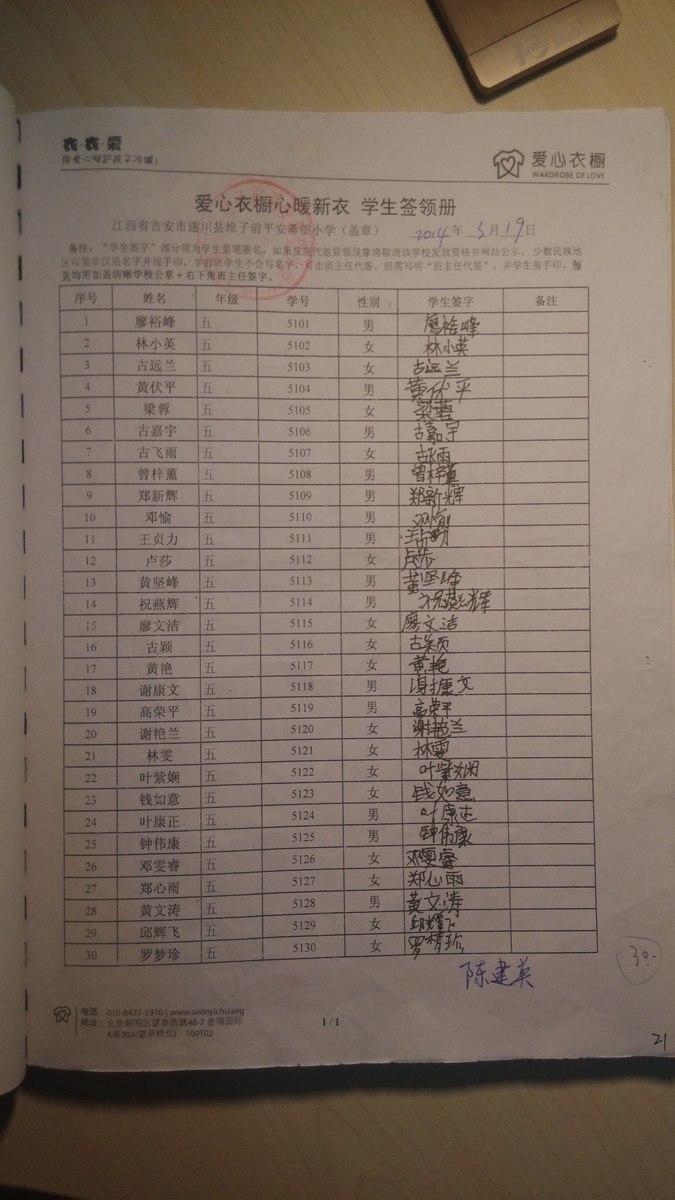 衣·衣·爱
用爱心呵护孩子冷暖!
爱心衣橱
WARDROBE OF LOVE
爱心衣橱心暖新衣 学生签领册
江西省吉安市遂川县堆子前平安希望小学（盖章） 2014年 3月19日
备注："学生签字"部分须为学生亲笔签名，如果发现代签冒领现象将取消该学校发放资格并网站公示。少数民族地
区可签非汉语名字并按手印，学前班学生不会写名字，可由班主任代签，但需写明"班主任代签"，并学生按手印。每
页均需加盖清晰学校公章+右下角班主任签字。
序号 姓名 年级 学号 性别 学生签字 备注
1 廖裕峰 五 5101 男 廖裕峰
2 林小英 五 5102 女 林小英
3 古远兰 五 5103 女 古远兰
4 黄伏平 五 5104 男 黄伏平
5 梁蓉 五 5105 女 梁蓉
6 古嘉宇 五 5106 男 古嘉宇
7 古飞雨 五 5107 女 古飞雨
8 曾梓薰 五 5108 男 曾梓薰
9 郑新辉 五 5109 男 郑新辉
10 邓愉 五 5110 男 邓愉
11 王贞力 五 5111 男
12 卢莎 五 5112 女 卢莎
13 黄坚峰 五 5113 男 黄坚峰
14 祝燕辉 五 5114 男 祝燕辉
15 廖文洁 五 5115 女 廖文洁
16 古颖 五 5116 女 古颖
17 黄艳 五 5117 女 黄艳
18 谢康文 五 5118 男 谢康文
19 高荣平 五 5119 男 高荣平
20 谢艳兰 五 5120 女 谢艳兰
21 林雯 五 5121 女 林雯
22 叶紫娴 五 5122 女 叶紫娴
23 钱如意 五 5123 女 钱如意
24 叶康正 五 5124 男 叶康正
25 钟伟康 五 5125 男 钟伟康
26 邓雯睿 五 5126 女 邓雯睿
27 郑心雨 五 5127 女 郑心雨
28 黄文涛 五 5128 男 黄文涛
29 邱辉飞 五 5129 女 邱辉飞
30 罗梦珍 五 5130 女 罗梦珍
陈建英
30.
电话：010-8477-5910 | www.aixinyichu.org
地址：北京朝阳区望京西路48-7 金隅国际
A座303(望京桥北)·100102
1 / 1
21